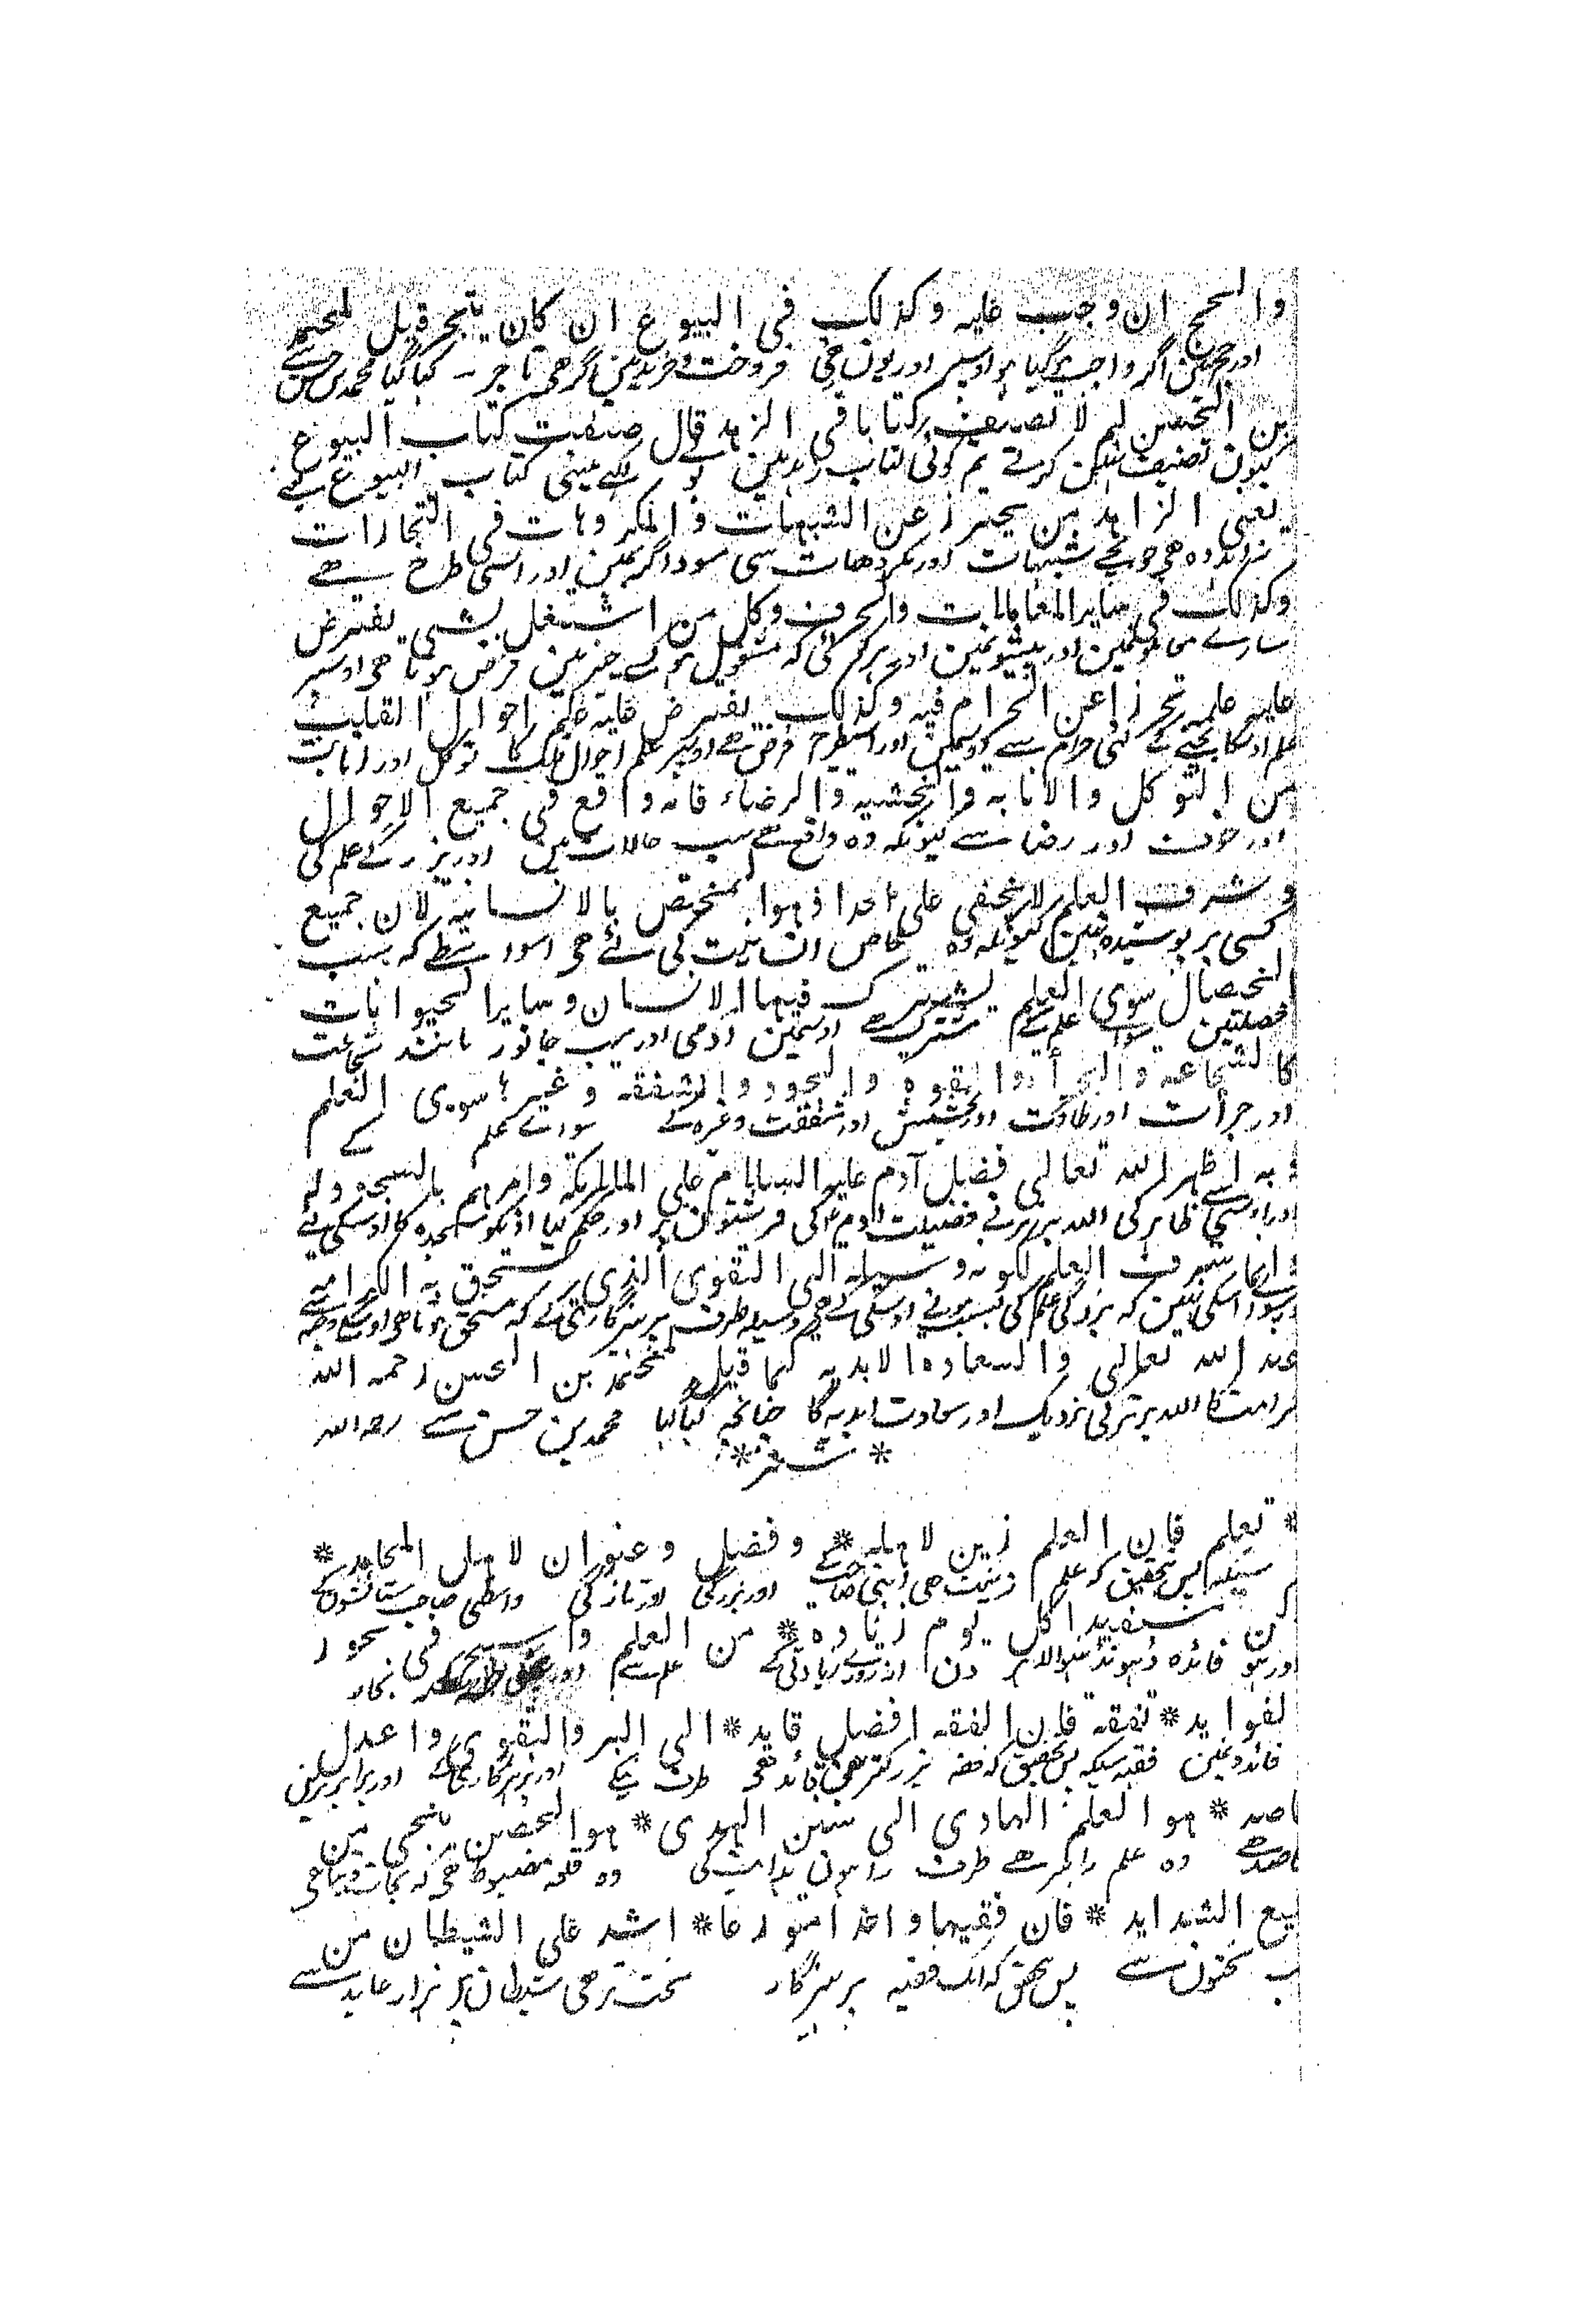 والحج ان وجب عليه وكذلك في البيوع ان كان يتجر قيل لمحمد
اور حج مین اگر واجب ہوگیا ہو اوسپر اور یون هی فروخت و خرید مین گر هی تاجر - کہا گیا محمد بن حسن سے
بن الحسن لم لا تصنف كتابا في الزهد قال صنفت كتاب البيوع
کیون تصنیف نہین کرتے تم کوئی کتاب زہد مین تو کہے مینی کتاب البیوع کے
يعني الزاهد من يحترز عن الشبهات والمكروهات في التجارات
زاہد وہ هی جو بچے شبہات اور مکروهات سی سوداگری مین اور اسی طرح سے
وكذلك في ساير المعاملات والحرف وكل من اشتغل بشي يفترض
سارے معاملمین اور پیشونمین اور ہر کوئی کہ مشغول ہو کسے چیز مین فرض ہوتا هی اوسپر
عليه علم تحرزا عن الحرام فيه وكذلك يفترض عليه علم احوال القلب
علم اوسکا بچنے کے لئی حرام سے اوسمین اور اسیطرح فرض هے اوسپر علم احوال قلب کا توکل اور انابت
من التوكل والانابه والخشيه والرضاء فانه واقع في جميع الاحوال
اور خوف اور رضا سے کیونکہ وہ واقع هے سب حالات مین اور بزرگے علم کی
وشرف العلم لا يخفى على احد اذ هوا لمختص بالانسانيه لان جميع
کسی پر پوشیدہ نہین کیونکہ وہ خاص انسانیت کی لئے هی اسواسطے کہ سب
الخصال سوى العلم يشترك فيها الانسان وساير الحيوانات
خصلتین سوا علم کے مشترک هے اوسمین آدمی اور سب جانور مانند شجاعت
كالشجاعه والجرأة والقوه والجود والشفقه وغيرها سوى العلم
اور جرأت اور طاقت اور بخشش اور شفقت وغیرہ کے سواے علم کے
وبه اظهر الله تعالى فضل آدم عليه السلام على الملائكة وامرهم بالسجود له
اور اوسی ظاہر کی اللہ برتر نے فضیلت آدم کی فرشتون پر اور حکم کیا اونکو سجدہ کا اوسکی لئے
وانما شرف العلم لكونه وسيلة الى التقوى الذي يستحق به الكرامه
اسکی نہین کہ بزرگی علم کی بسبب ہونے اوسکی کے هی وسیلہ طرف پرہیزگاری کے کہ مستحق ہوتا هی اوسکے وجہ سے
عند الله تعالى والسعاده الابديه كما قيل لمحمد بن الحسن رحمه الله
کرامت کا اللہ برتر کی نزدیک اور سعادت ابدیہ کا چنانچہ کہا گیا محمد بن حسن سے رحمہ اللہ
* شعر *
* تعلم فان العلم زين لاهله * وفضل وعنوان لاهل المحامد *
سیکھہ پس تحقیق کہ علم زینت هی اپنی صاحب کے اور بزرگی اور واسطی صاحب ستائشون کے
كن مستفيدا كل يوم زياده * من العلم واسبح في بحور
اور ہو فائدہ ڈہونڈنیوالا ہر دن از روے زیادتی کے علم سے اور
لفوايد * تفقه فان الفقه افضل قايد * الى البر والتقوى واعدل
فائدونمین فقہ سیکہہ پس تحقیق کہ فقہ بزرگتر هی قائد هی طرف نیکے اور پرہیزگاری کے اور برابرترین
قاصد * هو العلم الهادي الى سنن الهدى * هو الحصن ينجي من
قاصد هے وہ علم راہبر هے طرف راہون ہدایت کی وہ قلعہ مضبوط هی کہ نجات دیتا هی
جميع الشدايد * فان فقيها واحدا متورعا * اشد على الشيطان من
سب سختیون سے پس تحقیق کہ ایک فقیہ پرہیزگار سخت تر هی شیطان پر ہزار عابد سے